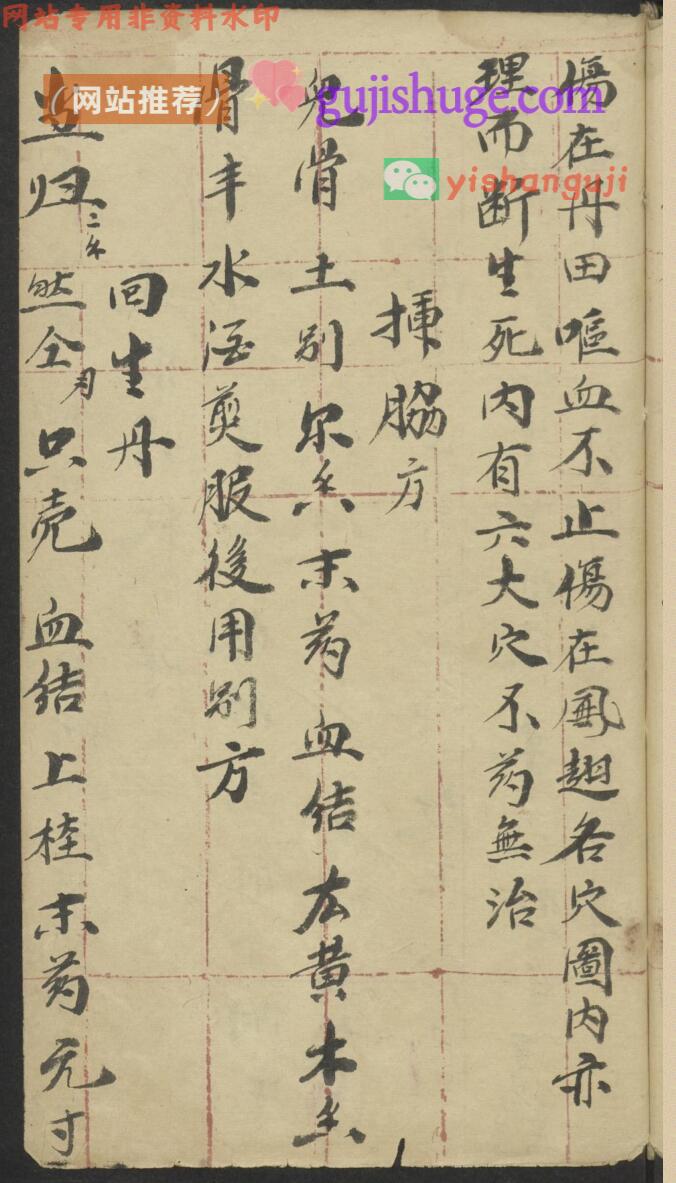 网站专用非资料水印
（网站推荐）
gujishuge.com
yishanguji
傷在丹田嘔血不止傷在鳳翅各穴圖内亦
理而断生死内有六大穴不药無治
挿脇方
兒骨土别尔乂末药血结大黄木乂
骨丰水酒煎服後用别方
回生丹
当归二 然仝 只壳血结上桂末药元寸